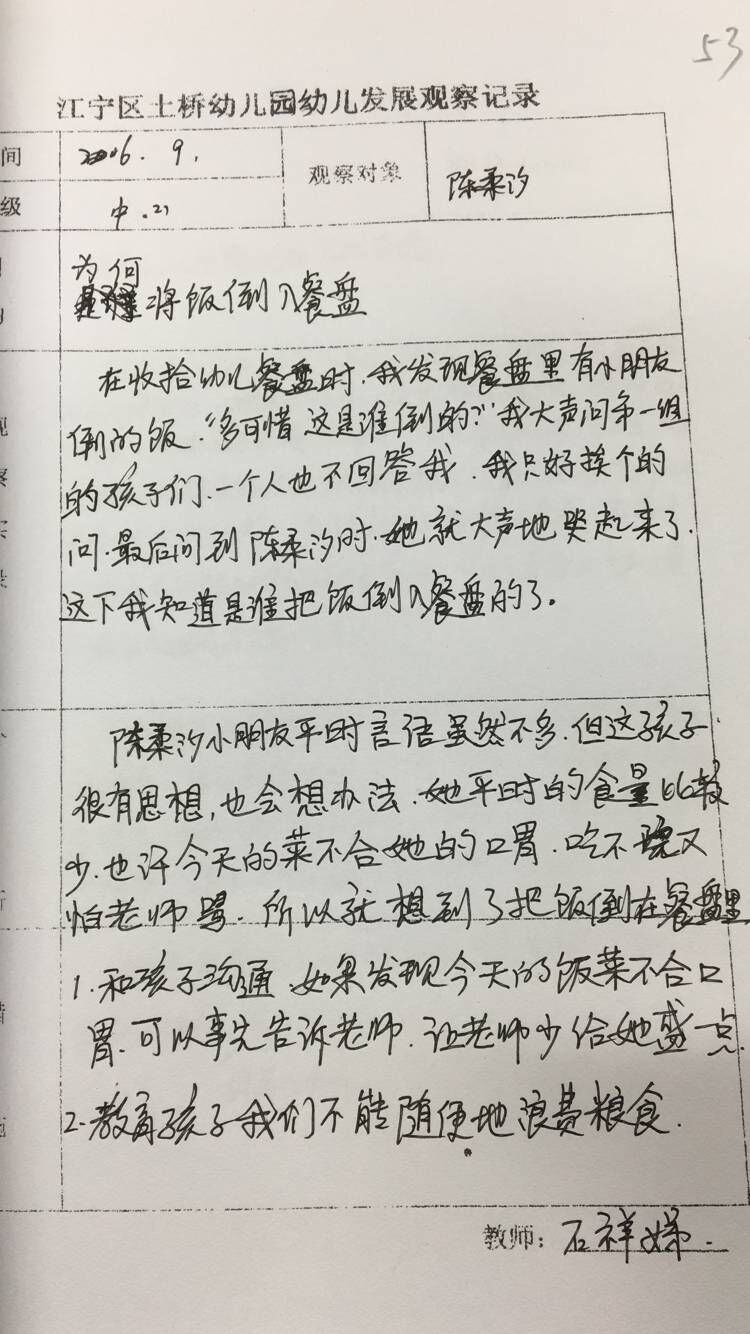 53
江宁区土桥幼儿园幼儿发展观察记录
间 2016.9.
观察对象 陈柔汐
级 中.
为何
将饭倒入餐盘
在收拾幼儿餐盘时.我发现餐盘里有小朋友
倒的饭.“多可惜 这是谁倒的?”我大声问第一组
的孩子们、一个人也不回答我.我只好挨个的
问.最后问到陈柔汐时.她就大声地哭起来了.
这下我知道是谁把饭倒入餐盘的了。
陈柔汐小朋友平时言语虽然不多.但这孩子
很有思想,也会想办法.她平时的食量比较
少.也许今天的菜不合她的口胃.吃不完又
怕老师骂.所以就想到了把饭倒在餐盘里
1.和孩子沟通.如果发现今天的饭菜不合口
胃.可以事先告诉老师.让老师少给她盛一点.
2.教育孩子我们不能随便地浪费粮食.
教师：石祥娣.